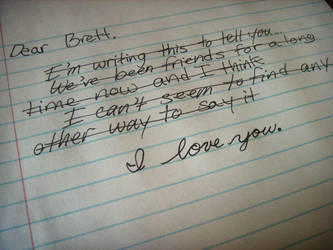 Dear Brett.
I'm writing this to tell you...
We've been friends for a long
time now and I think
I can't seem to find any
other way to say it
I love you.